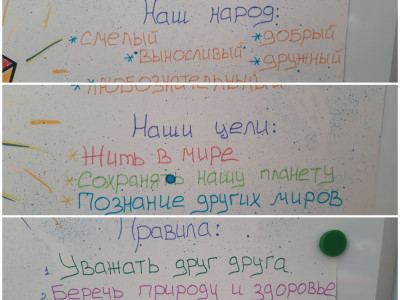 Наш народ:
*смелый *добрый
*выносливый *дружный
*любознательный
Наши цели:
*Жить в мире
*Сохранять нашу планету
*Познание других миров
Правила:
1. Уважать друг друга.
2. Беречь природу и здоровье